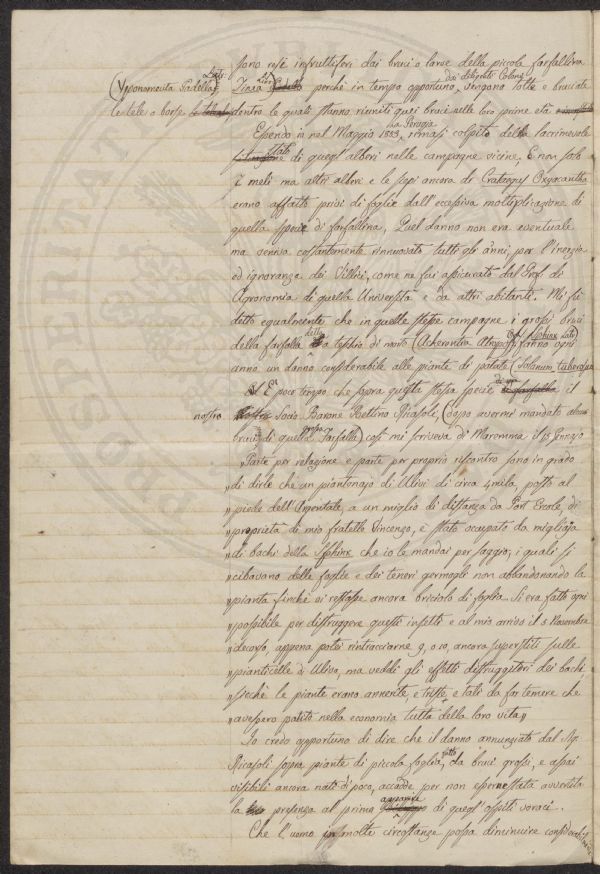 sono resi infruttiferi dai bruci o larve della piccola farfallina
(Yponomeuta Padella Latr:) Tinea perché in tempo opportuno, dai delegati Coloni vengano tolte e bruciate
le tele o borse dentro le quali stanno riuniti quei bruci nelle loro prime età
Essendo io nel Maggio 1853, a Perugia rimasi colpito dello lacrimevole
stato di quegli alberi nelle campagne vicine. E non solo
i meli ma altri alberi e le siepi ancora di Crataegus Oxyacantha
erano affatto privi di foglie dall'eccessiva moltiplicazione di
quella specie di farfallina. Quel danno non era eventuale
ma veniva costantemente rinnuovato tutti gli anni, per l'inerzia
ed ignoranza dei Villici, come ne fui assicurato dal Prof. di
Agronomia di quella Università e da altri abitanti. Mi fu
detto egualmente che in quelle stesse campagne i grossi bruci
della farfalla della testa di morto (Acherontia Atropos, Sphinx Latr) fanno ogni
anno un danno considerabile alle piante di patate (Solanum tuberosum
È poco tempo che sopra questa stessa specie il
nostro Socio Barone Bettino Ricasoli, (dopo avermi mandato alcuni
bruci di quella grossa Farfalla) così mi scriveva di Maremma il 15 Gennajo
„Parte per relazione e parte per proprio riscontro sono in grado
„di dirle che un piantonajo di Ulivi di circa 4 mila, posto al
„piede dell'Argentale, a un miglio di distanza da Port Ercole, di
„proprietà di mio fratello Vincenzo, è stato occupato da migliaja
„di bachi della Sphinx che io le mandai per saggio; i quali si
„cibavano delle foglie e dei teneri germogli non abbandonando la
„pianta finché vi restasse ancora briciolo di foglia. Si era fatto ogni
„possibile per distruggere questi insetti e al mio arrivo il 3 Novembre
„decorso, appena potei rintracciarne 9, o 10, ancora superstiti sulle
„pianticelle di Ulivo, ma veddi gli effetti distruggitori dei bachi
„sicché le piante erano annerite, e triste, e tali da far temere che
„avessero patito nella economia tutta della loro vita„
Io credo opportuno di dire che il danno annunziato dal Sig.
Ricasoli sopra piante di piccola foglia, fatto da bruci grossi, e assai
visibili ancora nati di poco, accadde per non essere stata avvertita
la presenza al primo apparire di quegli ospiti voraci.
Che l'uomo in molte circostanze possa diminuire